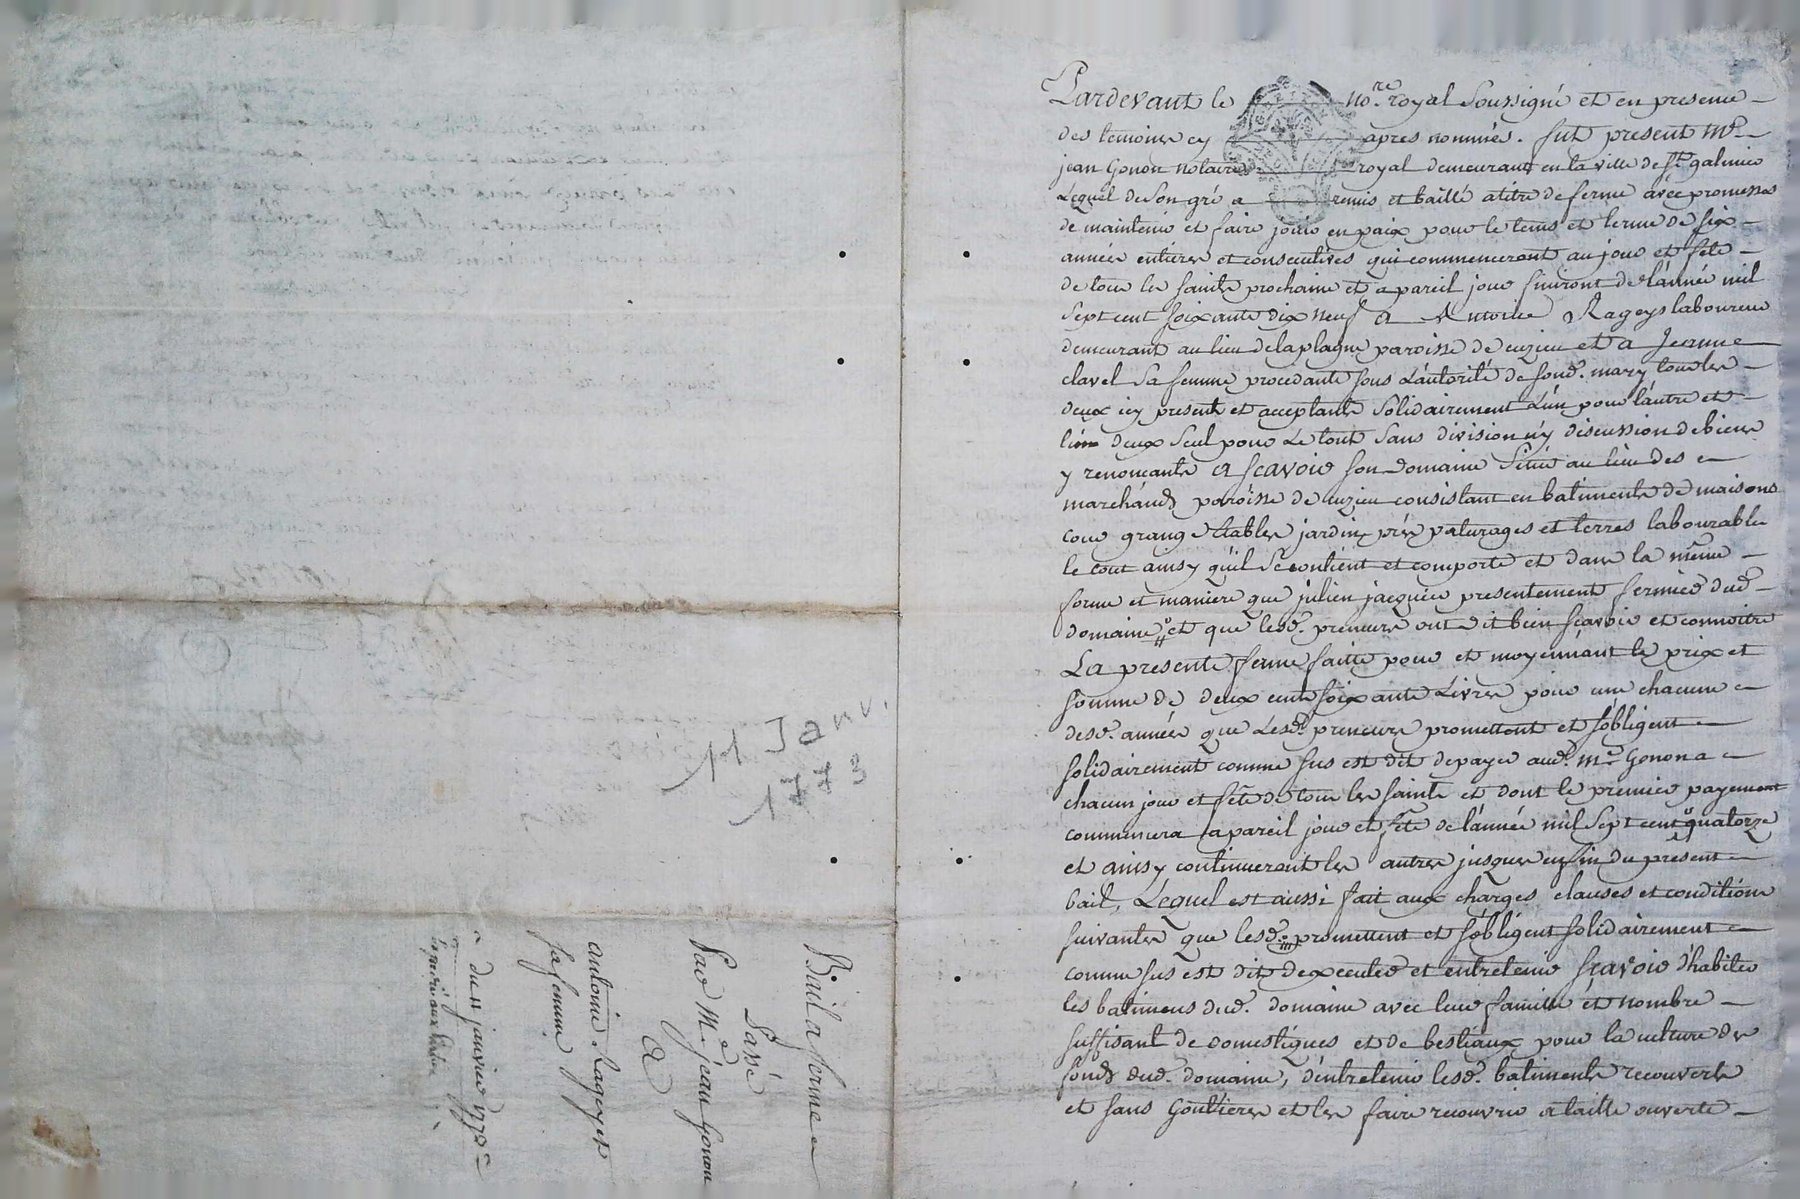 11 Janv.
1773
Bail a ferme
Passé
Par Me. jean Gonon
A
antoine Rageys et
sa femme
du 11 janvier 1773
Pardevant le no.re royal Soussigné et en presence
des temoins cy apres nommés. fut present Me.
jean Gonon notaire royal demeurant en la ville de St. galmier
Lequel de son gré a remis et baillé a titre de ferme avec promesses
de maintenir et faire jouir en paix pour le tems et terme de six
années entieres et consecutives qui commenceront au jour et fete
de tous les saints prochaine et a pareil jour finiront de l'année mil
Sept cent soixante dix neuf a Antoine Rageys laboureur
demeurant au lieu de la plagne paroisse de cuzieu et a Jeanne
clavel sa femme procedante sous L'autorité de sond. mary tous les
deux icy presents et acceptants Solidairement L'un pour l'autre et
l'un deux seul pour Le tout sans division n'y discussion de biens
y renonceants a scavoir son domaine Situé au lieu des
marchands paroisse de cuzieu consistant en batiments de maisons
cour grange Etables jardin prés paturages et terres labourables
le tout ainsy qu'il se contient et comporte et dans la même
forme et maniere que julien jacquier presentement fermier dud.
domaine et que lesd. preneurs ont dit bien scavoir et connoitre
La presente ferme faitte pour et moyennant le prix et
somme de deux cents soixante Livres pour une chacune
desd. années que Lesd. preneurs promettent et s'obligent
solidairement comme sus est dit de payer aud. Me. Gonon a
chacun jour et fête de tous les saints et dont le premier payement
commencera a pareil jour et fête de l'année mil Sept cent quatorze
et ainsy continueront les autres jusques en fin du present
bail, Lequel est aussi fait aux charges clauses et conditions
suivantes que lesd. promettent et s'obligent solidairement
comme sus est dit d'executer et entretenir scavoir d'habiter
les batimens dud. domaine avec leur famille et nombre
suffisant de domestiques et de bestiaux pour la culture des
fonds dud. domaine, d'entretenir lesd. batiments recouverts
et sans Gouttieres et les faire recouvrir a taille ouverte